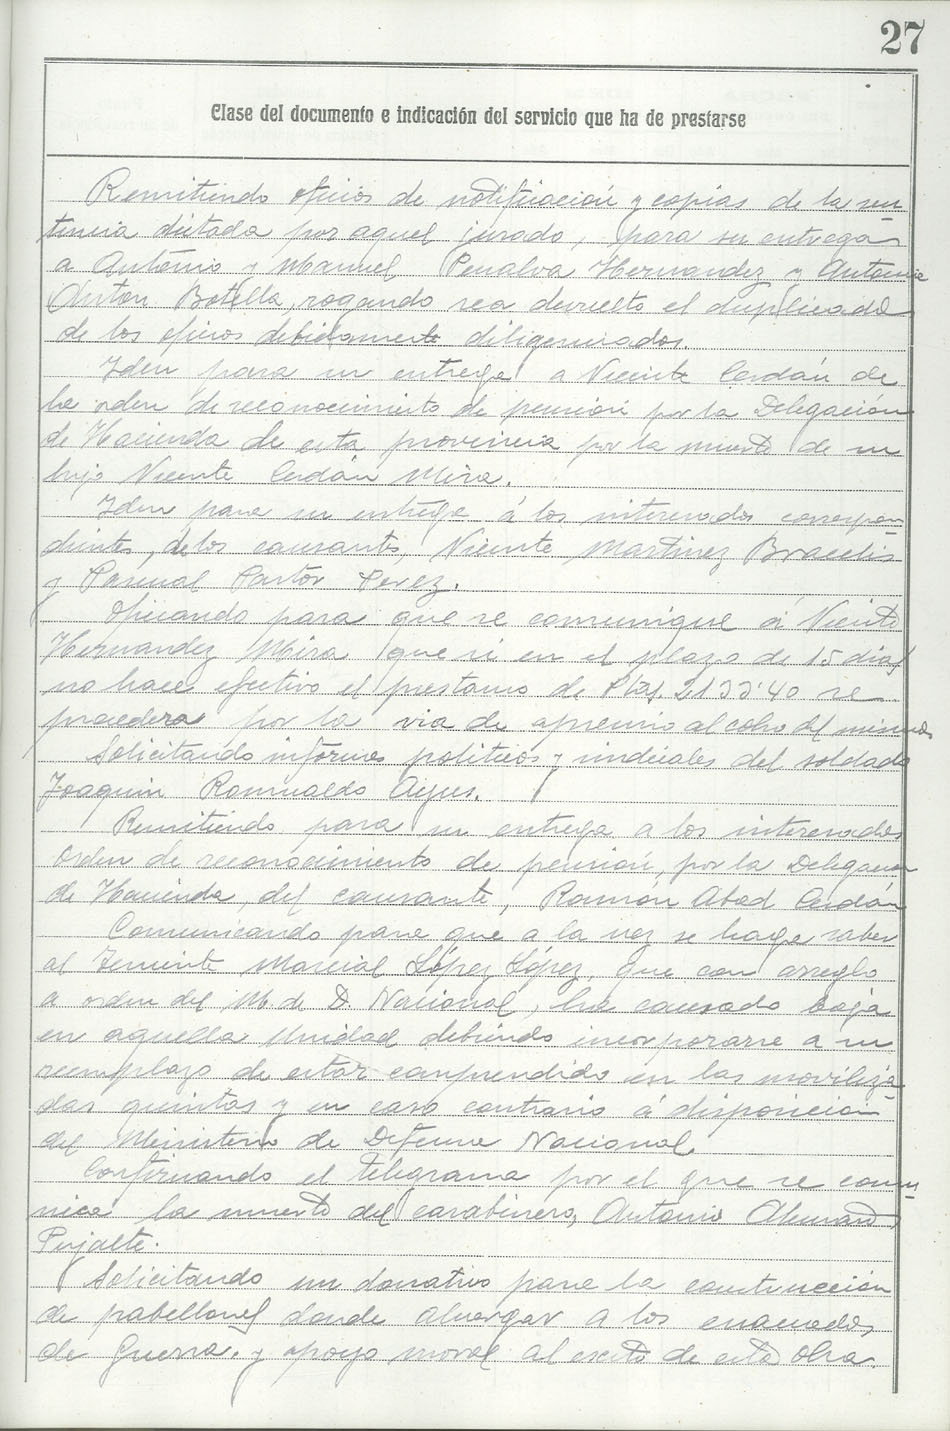 27
Clase del documento e indicación del servicio que ha de prestarse
Remitiendo oficios de notificación y copias de la sen
tencia dictada por aquel jurado, para su entrega
a Antonio y Manuel Penalva Hernandez y Antonio
Anton Botella, rogando sea devuelto el duplicado
de los oficios debidamente diligenciados.
Iden para su entrega a Vicente Cerdán de
la orden de reconocimiento de pension por la Delegación
de Hacienda de esta provincia por la muerte de su
hijo Vicente Cerdán Mira.
Iden para su entrega á los interesados correspon
dientes, de los causantes, Vicente Martinez Braceli
y Pascual Pastor Perez.
Oficiando para que se comunique á Vicente
Hernandez Mira que si en el plazo de 15 dias
no hace efectivo el prestamo de Ptas. 2133'40 se
procedera por la via de apremio al cobro del mismo
Solicitando informes politicos y sindicales del soldado
Joaquin Romualdo Ayus.
Remitiendo para su entrega a los interesados
Orden de reconocimiento de pensión, por la Delegacion
de Hacienda, del causante, Ramón Abad Cerdán
Comunicando para que a la vez se haga saber
al Teniente Marcial López López, que con arreglo
a orden del M. de D. Nacional, ha causado baja
en aquella Unidad debiendo incorporarse a su
reemplazo de estar comprendido en las moviliza
das quintas y en caso contrario á disposicion
del Ministerio de Defensa Nacional.
Confirmando el telegrama por el que se comu
nica la muerte del carabinero, Antonio Alemañ
Pujalte.
Solicitando un donativo para la construcción
de pabellones donde alvergar a los evacuados
de Guerra. y apoyo moral al exito de esta obra.